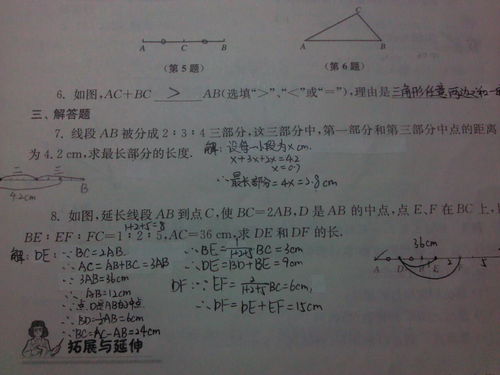 A C B
C
A B
(第5题) (第6题)
6. 如图,AC+BC > AB(选填“>”、“<”或“=”),理由是三角形任意两边之和
三、解答题
7. 线段AB被分成2:3:4三部分,这三部分中,第一部分和第三部分中点的距离
为4.2cm,求最长部分的长度. 解:设每一小段为xcm.
x+3x+2x=4.2
x=0.7
∴最长部分=4x=2.8cm
B
4.2cm
8. 如图,延长线段AB到点C,使BC=2AB,D是AB的中点,点E、F在BC上,
1+2+5=8
BE:EF:FC=1:2:5,AC=36cm,求DE和DF的长.
解:DE:∵BC=2AB
∴AC=AB+BC=3AB
∴3AB=36cm
∴AB=12cm
∵点D是AB的中点
∴BD=½AB=6cm
∵BC=AC-AB=24cm
∴BE=1/1+2+5 BC=3cm
∴DE=BD+BE=9cm
DF:∵EF=2/1+2+5 BC=6cm,
∴DF=DE+EF=15cm
36cm
A D B E 2 5
拓展与延伸